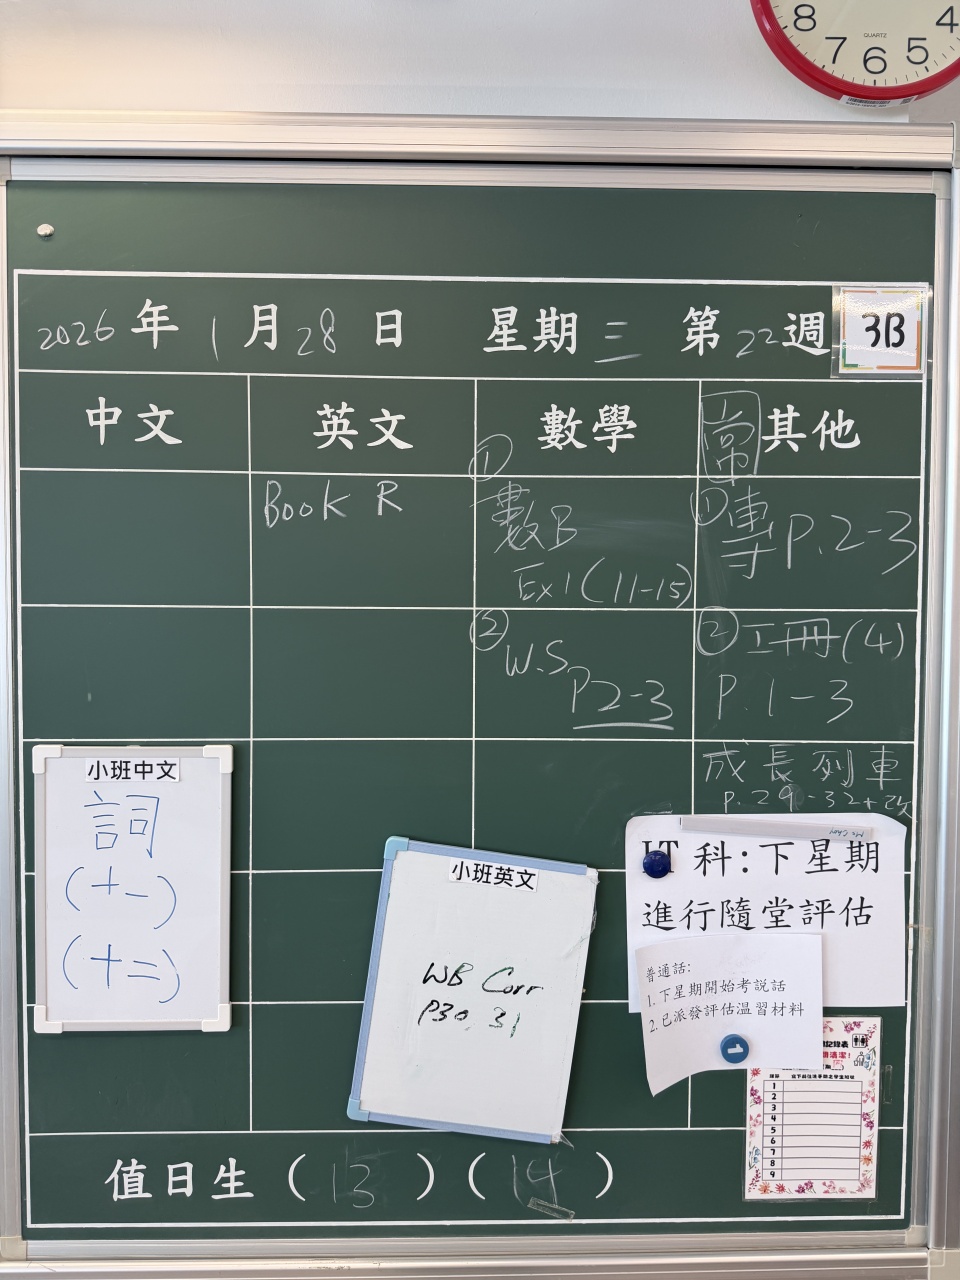 8 7 6 5 4
QUARTZ
2026年1月28日 星期三 第22週 3B
中文 英文 數學 常 其他
Book R
① 數B
Ex1(11-15)
② W.S
P2-3
① 專 P.2-3
② 工冊(4)
P.1-3
成長列車
P.29-32+改
小班中文
詞
(十一)
(十二)
小班英文
WB Corr
P30, 31
IT科:下星期
進行隨堂評估
普通話:
1. 下星期開始考説話
2. 已派發評估温習材料
1
記錄表
清潔!
1
2
3
4
5
6
7
8
9
值日生(13)(14)